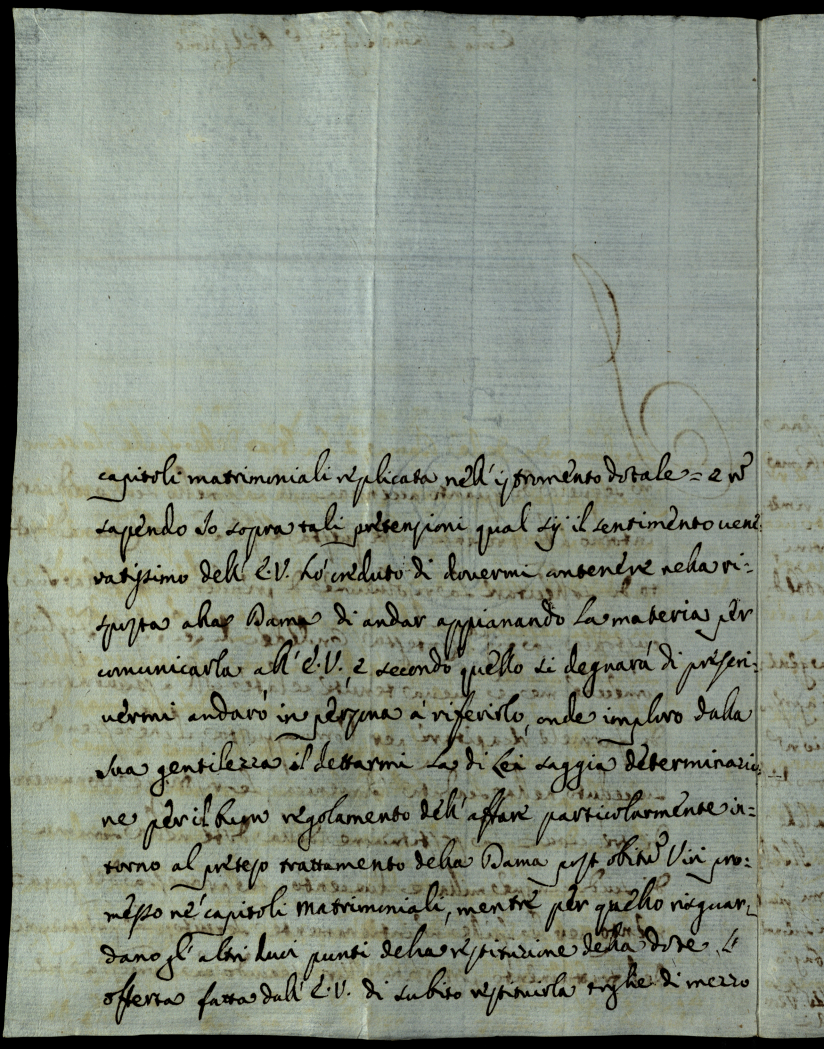 capitoli matrimoniali replicata nell'istromento dotale = e nō
sapendo Io sopra tali pretensioni qual sij il sentimento uene:
ratissimo dell' E.V. hò creduto di dovermi contenere nella ri=
sposta alla Dama di andar appianando la materia per
comunicarla all' E.V., e secondo quello si degnarà di prescri:
uermi andarò in persona à riferirlo, onde imploro dalla
sua gentilezza il dettarmi la di Lei saggia determinazio:
ne per il buon regolamento dell' affare particolarmente in=
torno al preteso trattamento della Dama post obitū Viri pro:
messo ne' capitoli matrimoniali, mentre per quello risguar=
dano gl' altri duci punti della restituzione della dote, l'
offerta fatta dall' E.V. di subito restituirla toglie di mezzo